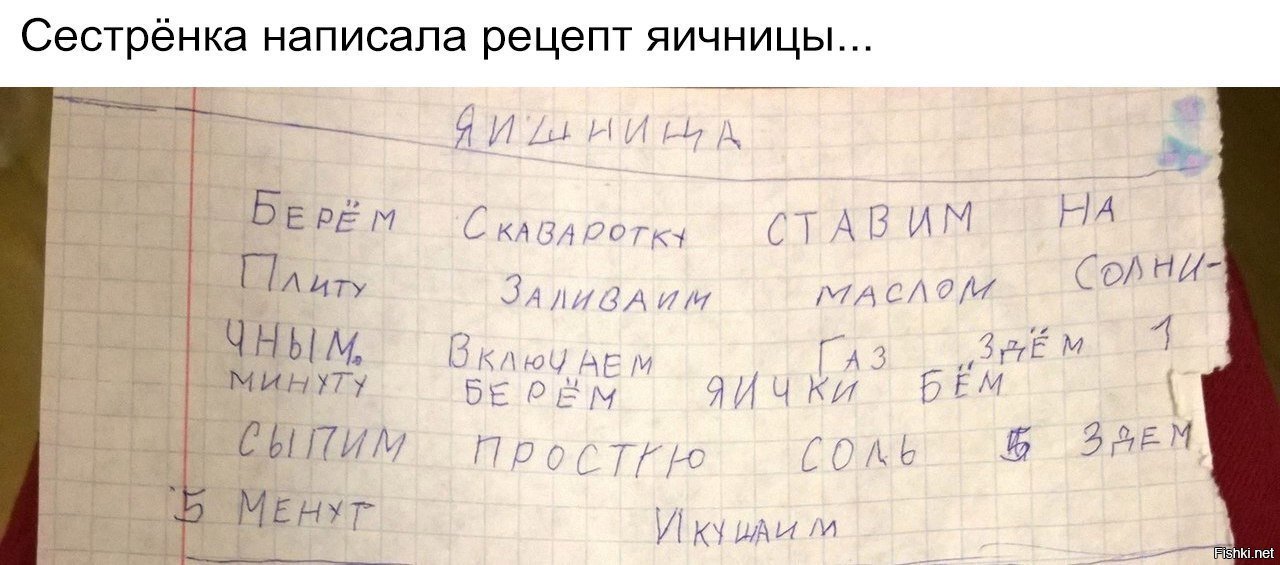 Сестрёнка написала рецепт яичницы...
ЯИШНИЦА
БЕРЁМ СКАВАРОТКУ СТАВИМ НА
ПЛИТУ ЗАЛИВАИМ МАСЛОМ СОЛНИ-
ЧНЫМ. ВКЛЮЧАЕМ ГАЗ ЗДЁМ 1
МИНУТУ БЕРЁМ ЯИЧКИ БЁМ
СЫПИМ ПРОСТУЮ СОЛЬ ЗДЕМ
5 МЕНУТ ИКУШАИМ
Fishki.net